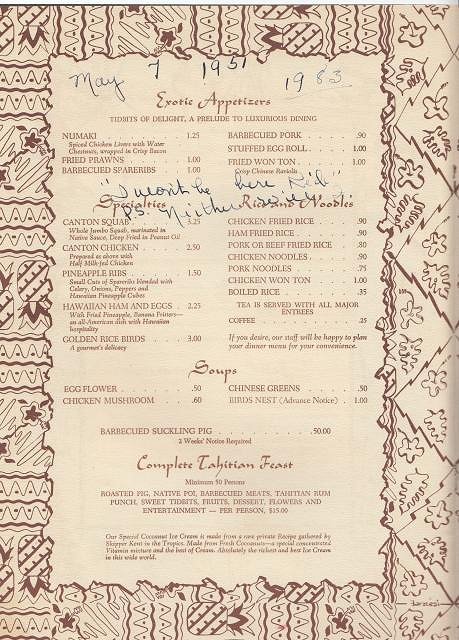 May 7 1951
1983
Exotic Appetizers
TIDBITS OF DELIGHT, A PRELUDE TO LUXURIOUS DINING
NUMAKI . . . . . . . . 1.25
Spiced Chicken Livers with Water
Chestnut, wrapped in Crisp Bacon
FRIED PRAWNS . . . . . . 1.00
BARBECUED SPARERIBS . . 1.00
BARBECUED PORK . . . . . .90
STUFFED EGG ROLL . . . . 1.00
FRIED WON TON . . . . . 1.00
Crisp Chinese Raviolis
"I won't be here, Rib"
P.S.
Specialties
CANTON SQUAB . . . . . 3.25
Whole Jumbo Squab, marinated in
Native Sauce, Deep Fried in Peanut Oil
CANTON CHICKEN . . . . 2.50
Prepared as above with
Half Milk-fed Chicken
PINEAPPLE RIBS . . . . . 1.50
Small Cuts of Spareribs blended with
Celery, Onions, Peppers and
Hawaiian Pineapple Cubes
HAWAIIAN HAM AND EGGS . 2.25
With Fried Pineapple, Banana Fritters—
an all-American dish with Hawaiian
hospitality
GOLDEN RICE BIRDS . . . 3.00
A gourmet's delicacy
Rice and Noodles
CHICKEN FRIED RICE . . . . .90
HAM FRIED RICE . . . . . .90
PORK OR BEEF FRIED RICE .80
CHICKEN NOODLES . . . . .90
PORK NOODLES . . . . . . .75
CHICKEN WON TON . . . . 1.00
BOILED RICE . . . . . . . .35
TEA IS SERVED WITH ALL MAJOR
ENTREES
COFFEE . . . . . . . . .25
If you desire, our staff will be happy to plan
your dinner menu for your convenience.
Soups
EGG FLOWER . . . . . . .50
CHICKEN MUSHROOM . . .60
CHINESE GREENS . . . . . .50
BIRDS NEST (Advance Notice) . 1.00
BARBECUED SUCKLING PIG . . . . . . . . . 50.00
2 Weeks' Notice Required
Complete Tahitian Feast
Minimum 50 Persons
ROASTED PIG, NATIVE POI, BARBECUED MEATS, TAHITIAN RUM
PUNCH, SWEET TIDBITS, FRUITS, DESSERT, FLOWERS AND
ENTERTAINMENT — PER PERSON, $15.00
Our Special Coconut Ice Cream is made from a rare private Recipe gathered by
Skipper Kent in the Tropics. Made from Fresh Coconuts—a special concentrated
Vitamin mixture and the best of Cream. Absolutely the richest and best Ice Cream
in this wide world.